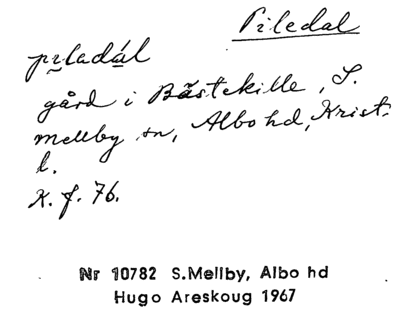 Piledal
piladál
gård i Bästekille, S.
mellby sn, Albo hd, Krist.
l.
K. f. 76.
Nr 10782 S.Mellby, Albo hd
Hugo Areskoug 1967